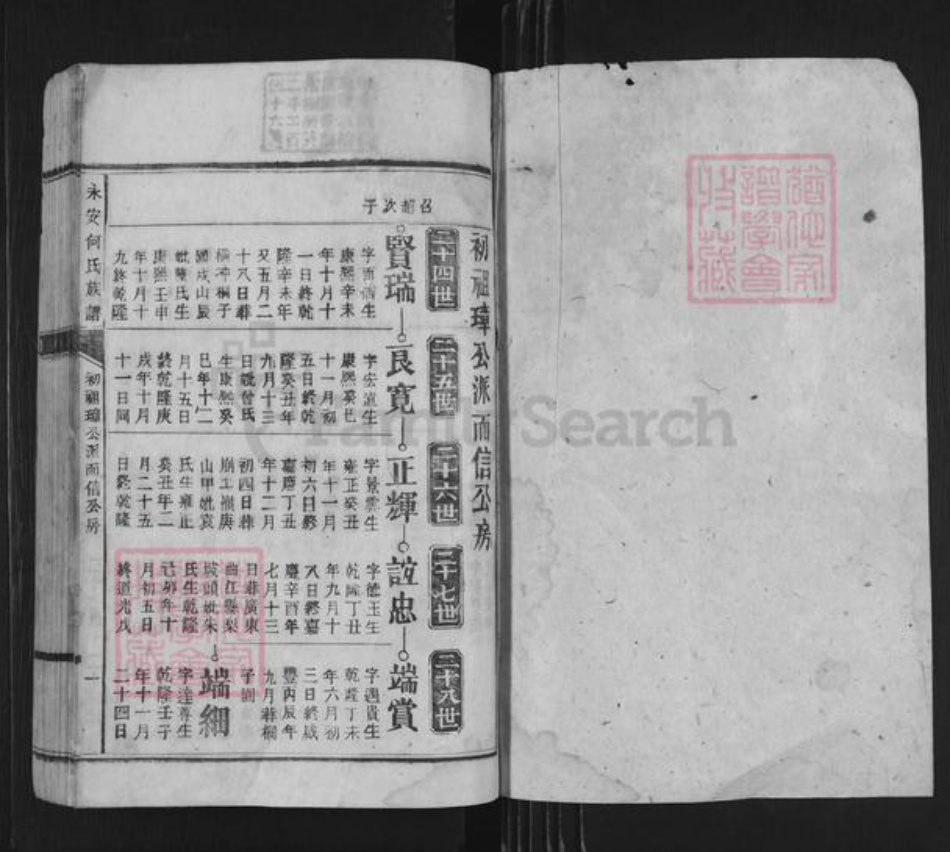 初祖璋公派而信公房
二十四世
二十五世
二十六世
二十七世
二十八世
召超次子
賢瑞
康熙辛未
年十月十
一日終乾
隆辛未年
又五月二
十八日葬
妣 氏生
康熙壬申
年十月十
九終乾隆
良寬
字宏 生
康熙癸巳
十一月初
五日終乾
隆癸丑年
九月十三
日 曾氏
生康熙癸
巳年十二
月十五日
終乾隆庚
戌年十月
十一日同
正輝
字景雲生
雍正癸丑
年十一月
初六日終
嘉慶丁丑
年十二月
初四日葬
山甲妣袁
氏生雍正
癸丑年二
月二十五
日終乾隆
誼忠
字德玉生
乾隆丁丑
年九月十
八日終嘉
慶辛酉年
七月十三
日葬廣東
曲江縣梨
坡頭妣朱
氏生乾隆
己卯年十
月初五日
終道光戊
端賞
字遇貴生
乾隆丁未
年六月初
三日終咸
豐丙辰年
九月葬桐
子園
端細
字達尊生
乾隆壬子
年十一月
二十四日
永安何氏族譜
初祖璋公派而信公房
一
FamilySearch